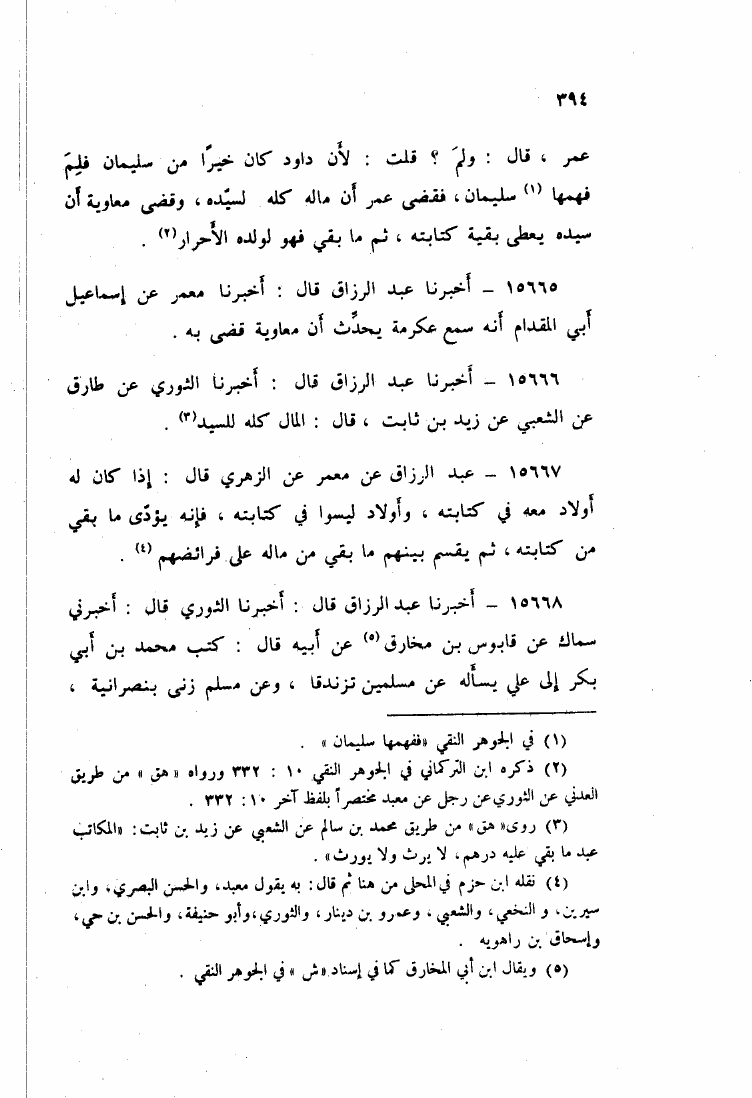 ٣٩٤
عمر ، قال : ولِمَ ؟ قلت : لأَن داود كان خيرًا من سليمان فلِمَ
فهمها (١) سليمان، فقضى عمر أَن ماله كله لسيّده، وقضى معاوية أَن
سيده يعطى بقية كتابته ، ثم ما بقي فهو لولده الأَحرار(٢) .
١٥٦٦٥ – أَخبرنا عبد الرزاق قال : أَخبرنا معمر عن إسماعيل
أَبي المقدام أَنه سمع عكرمة يحدِّث أَن معاوية قضى به .
١٥٦٦٦ – أَخبرنا عبد الرزاق قال : أَخبرنا الثوري عن طارق
عن الشعبي عن زيد بن ثابت ، قال : المال كله للسيد(٣) .
١٥٦٦٧ – عبد الرزاق عن معمر عن الزهري قال : إذا كان له
أَولاد معه في كتابته ، وأَولاد ليسوا في كتابته ، فإنه يؤدّى ما بقي
من كتابته ، ثم يقسم بينهم ما بقي من ماله على فرائضهم (٤) .
١٥٦٦٨ – أَخبرنا عبد الرزاق قال : أَخبرنا الثوري قال : أَخبرني
سماك عن قابوس بن مخارق(٥) عن أَبيه قال : كتب محمد بن أَبي
بكر إلى علي يسأَله عن مسلمين تزندقا ، وعن مسلم زنى بنصرانية ،
(١) في الجوهر النقي «ففهمها سليمان» .
(٢) ذكره ابن التركماني في الجوهر النقي ١٠ : ٣٣٢ ورواه «هق» من طريق
العدني عن الثوري عن رجل عن معبد مختصراً بلفظ آخر ١٠: ٣٣٢ .
(٣) روى «هق» من طريق محمد بن سالم عن الشعبي عن زيد بن ثابت: «المكاتب
عبد ما بقي عليه درهم، لا يرث ولا يورث» .
(٤) نقله ابن حزم في المحلى من هنا ثم قال: به يقول معبد، والحسن البصري، وابن
سيرين، و النخعي، والشعبي ، وعمرو بن دينار، والثوري، وأبو حنيفة، والحسن بن حي،
وإسحاق بن راهويه .
(٥) ويقال ابن أبي المخارق كما في إسناد «ش» في الجوهر النقي .